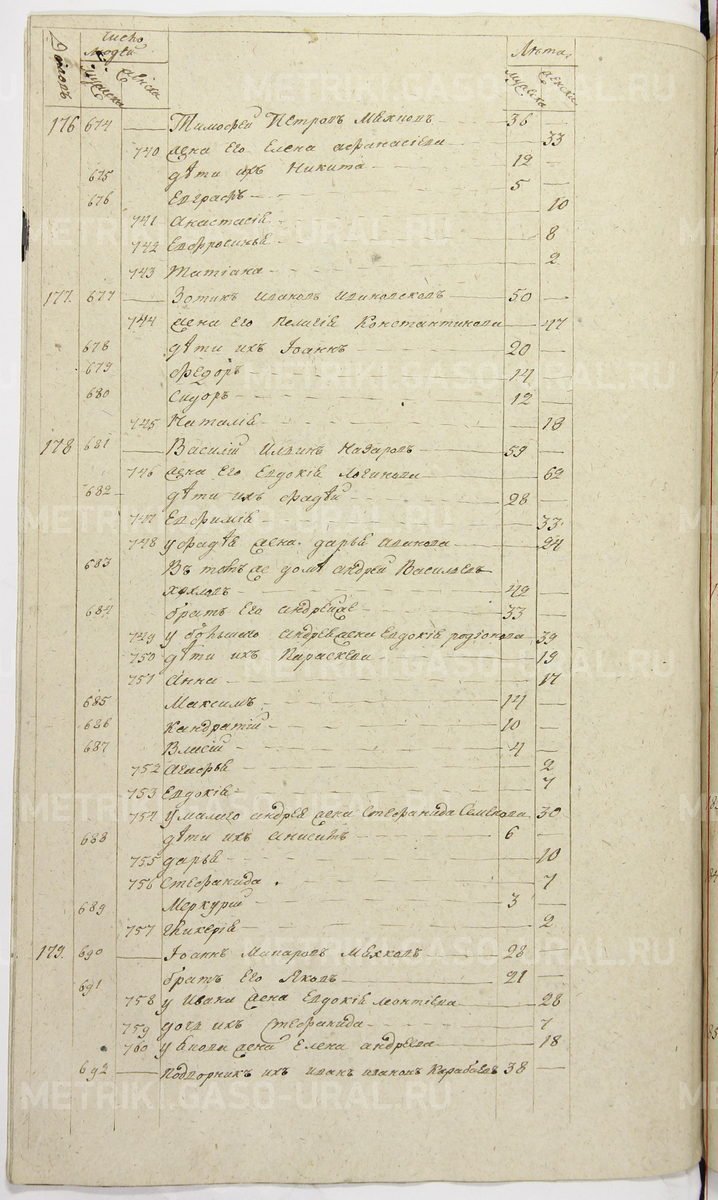 Домовъ Число людей Лѣта
мужеска женска мужеска женска
176 674 Тимофей Петровъ Мехновъ 36
740 жена Его Елена афанасіева 33
675 дѣти ихъ Никита 12
676 Евграфъ 5
741 Анастасіѣ 10
742 Евфросиньѣ 8
743 Татіана 2
177 677 Зотикъ Иваковъ 50
744 жена Его Пелагіѣ Константинова 47
678 дѣти ихъ Іоаннъ 20
679 Ѳедоръ 14
680 Сидоръ 12
745 Наталіѣ 18
178 681 Василій Ильинъ Назаровъ 59
746 жена Его Евдокіѣ Логинова 62
682 дѣти ихъ Фадѣй 28
747 Евфиміѣ 33
748 у Фадѣѣ жена дарьѣ Иванова 24
683 Въ томъ же домѣ андрей Васильевъ
Хохловъ 42
684 братъ Его андрей же 33
749 у большаго андреѣ жена Евдокіѣ родіонова 39
750 дѣти ихъ Параскева 19
751 Анна 17
685 Максимъ 14
686 Кандратій 10
687 Власій 4
752 2
753 Евдокіѣ 7
754 у малаго андреѣ жена Стефанида Семенова 30
688 дѣти ихъ Анисимъ 6
755 дарьѣ 10
756 Стефанида 7
689 Меркурій 3
757 Гликеріѣ 2
179 690 Іоаннъ Макаровъ 28
691 братъ Его Яковъ 21
758 у Ивана жена Евдокіѣ Леонтіева 28
759 дочь ихъ Стефанида 7
760 у Якова жена Елена андреева 18
692 Подворникъ ихъ Иванъ Ивановъ Карабаевъ 38
METRIKI.GASO-URAL.RU